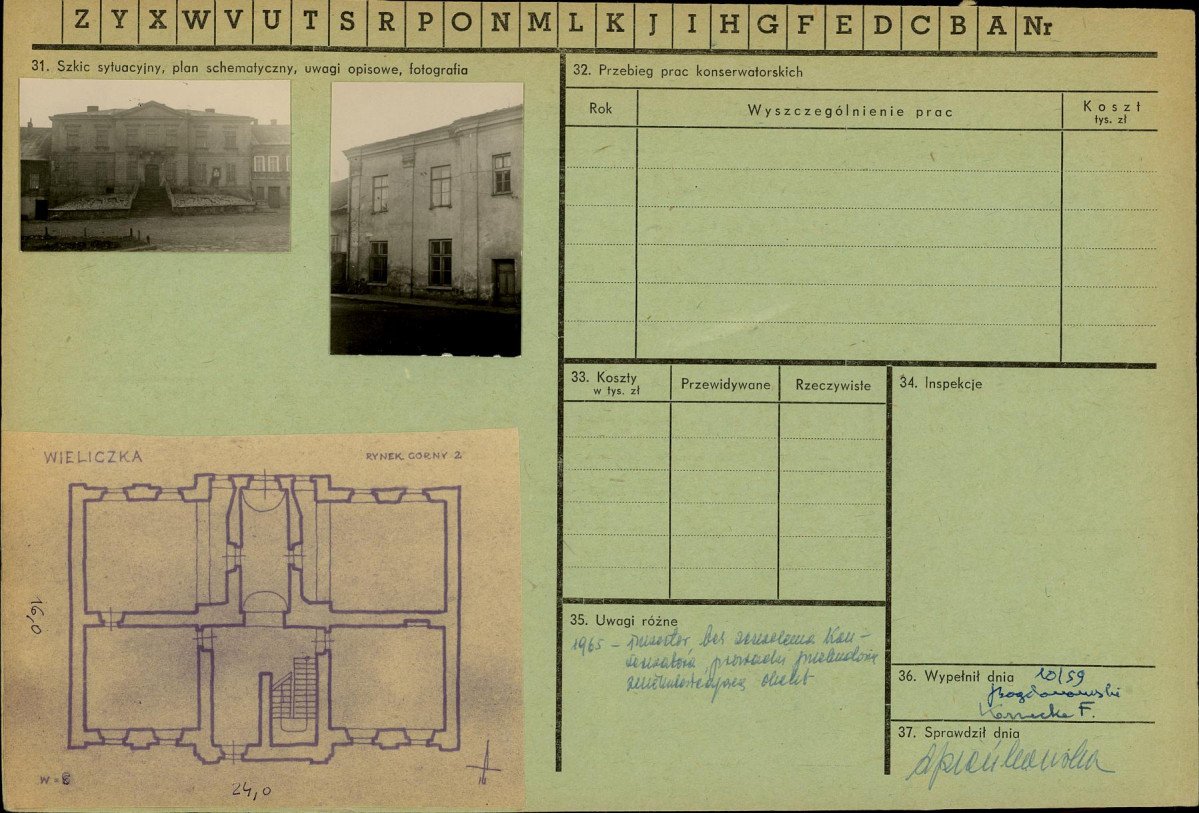 Z Y X W V U T S R P O N M L K J I H G F E D C B A Nr
31. Szkic sytuacyjny, plan schematyczny, uwagi opisowe, fotografia
WIELICZKA
RYNEK GORNY 2
16,0
24,0
32. Przebieg prac konserwatorskich
Rok
Wyszczególnienie prac
Koszt
tys. zł
33. Koszty
w tys. zł
Przewidywane
Rzeczywiste
34. Inspekcje
35. Uwagi różne
1965 – inwestor bez zezwolenia Kon-
serwatora prowadzi przebudowę
obiekt
36. Wypełnił dnia 10/59
JBogdanowski
Kornecka F.
37. Sprawdził dnia